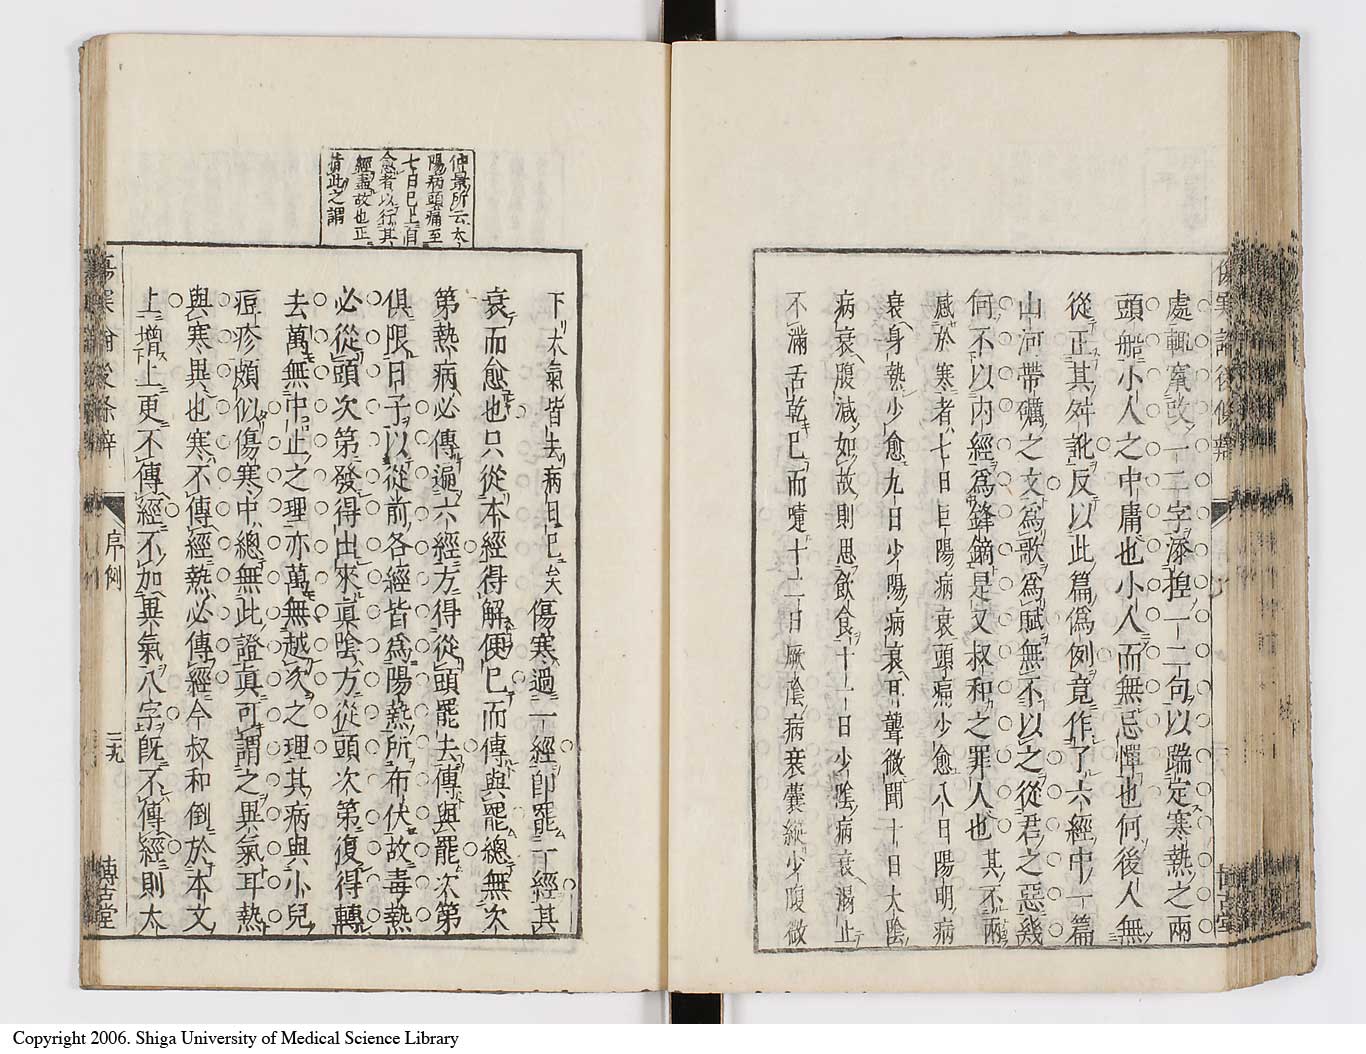 處輒竄改一二字添揑一二句以踹定寒熱之兩
頭船小人之中庸也小人而無忌憚也何後人無
從正其舛訛反以此篇僞例竟作了六經中一篇
山河帶礪之文爲歌爲賦無不以之從君之惡幾
何不以内經爲鋒鏑是又叔和之罪人也其不兩
感於寒者七日巨陽病衰頭痛少愈八日陽明病
衰身熱少愈九日少陽病衰耳聾微聞十日太陰
病衰腹減如故則思飲食十一日少陰病衰渴止
不滿舌乾已而嚏十二日厥陰病衰囊縱少腹微
仲景所云太
陽病頭痛至
七日已上自
愈者以行其
經盡故也正
指此之謂
下大氣皆去病日已矣傷寒過一經即罷一經其
衰而愈也只從本經得解便已而傳與罷總無次
第熱病必傳遍六經方得從頭罷去傳與罷次第
俱限日子以從前各經皆爲陽熱所布伏故毒熱
必從頭次第發得出來眞陰方從頭次第復得轉
去萬無中止之理亦萬無越次之理其病與小兒
痘疹頗似傷寒中總無此證眞可謂之異氣耳熱
與寒異也寒不傳經熱必傳經今叔和倒於本文
上增上更不傳經不加異氣八字既不傳經則太
序例
三九
博古堂
Copyright 2006. Shiga University of Medical Science Library